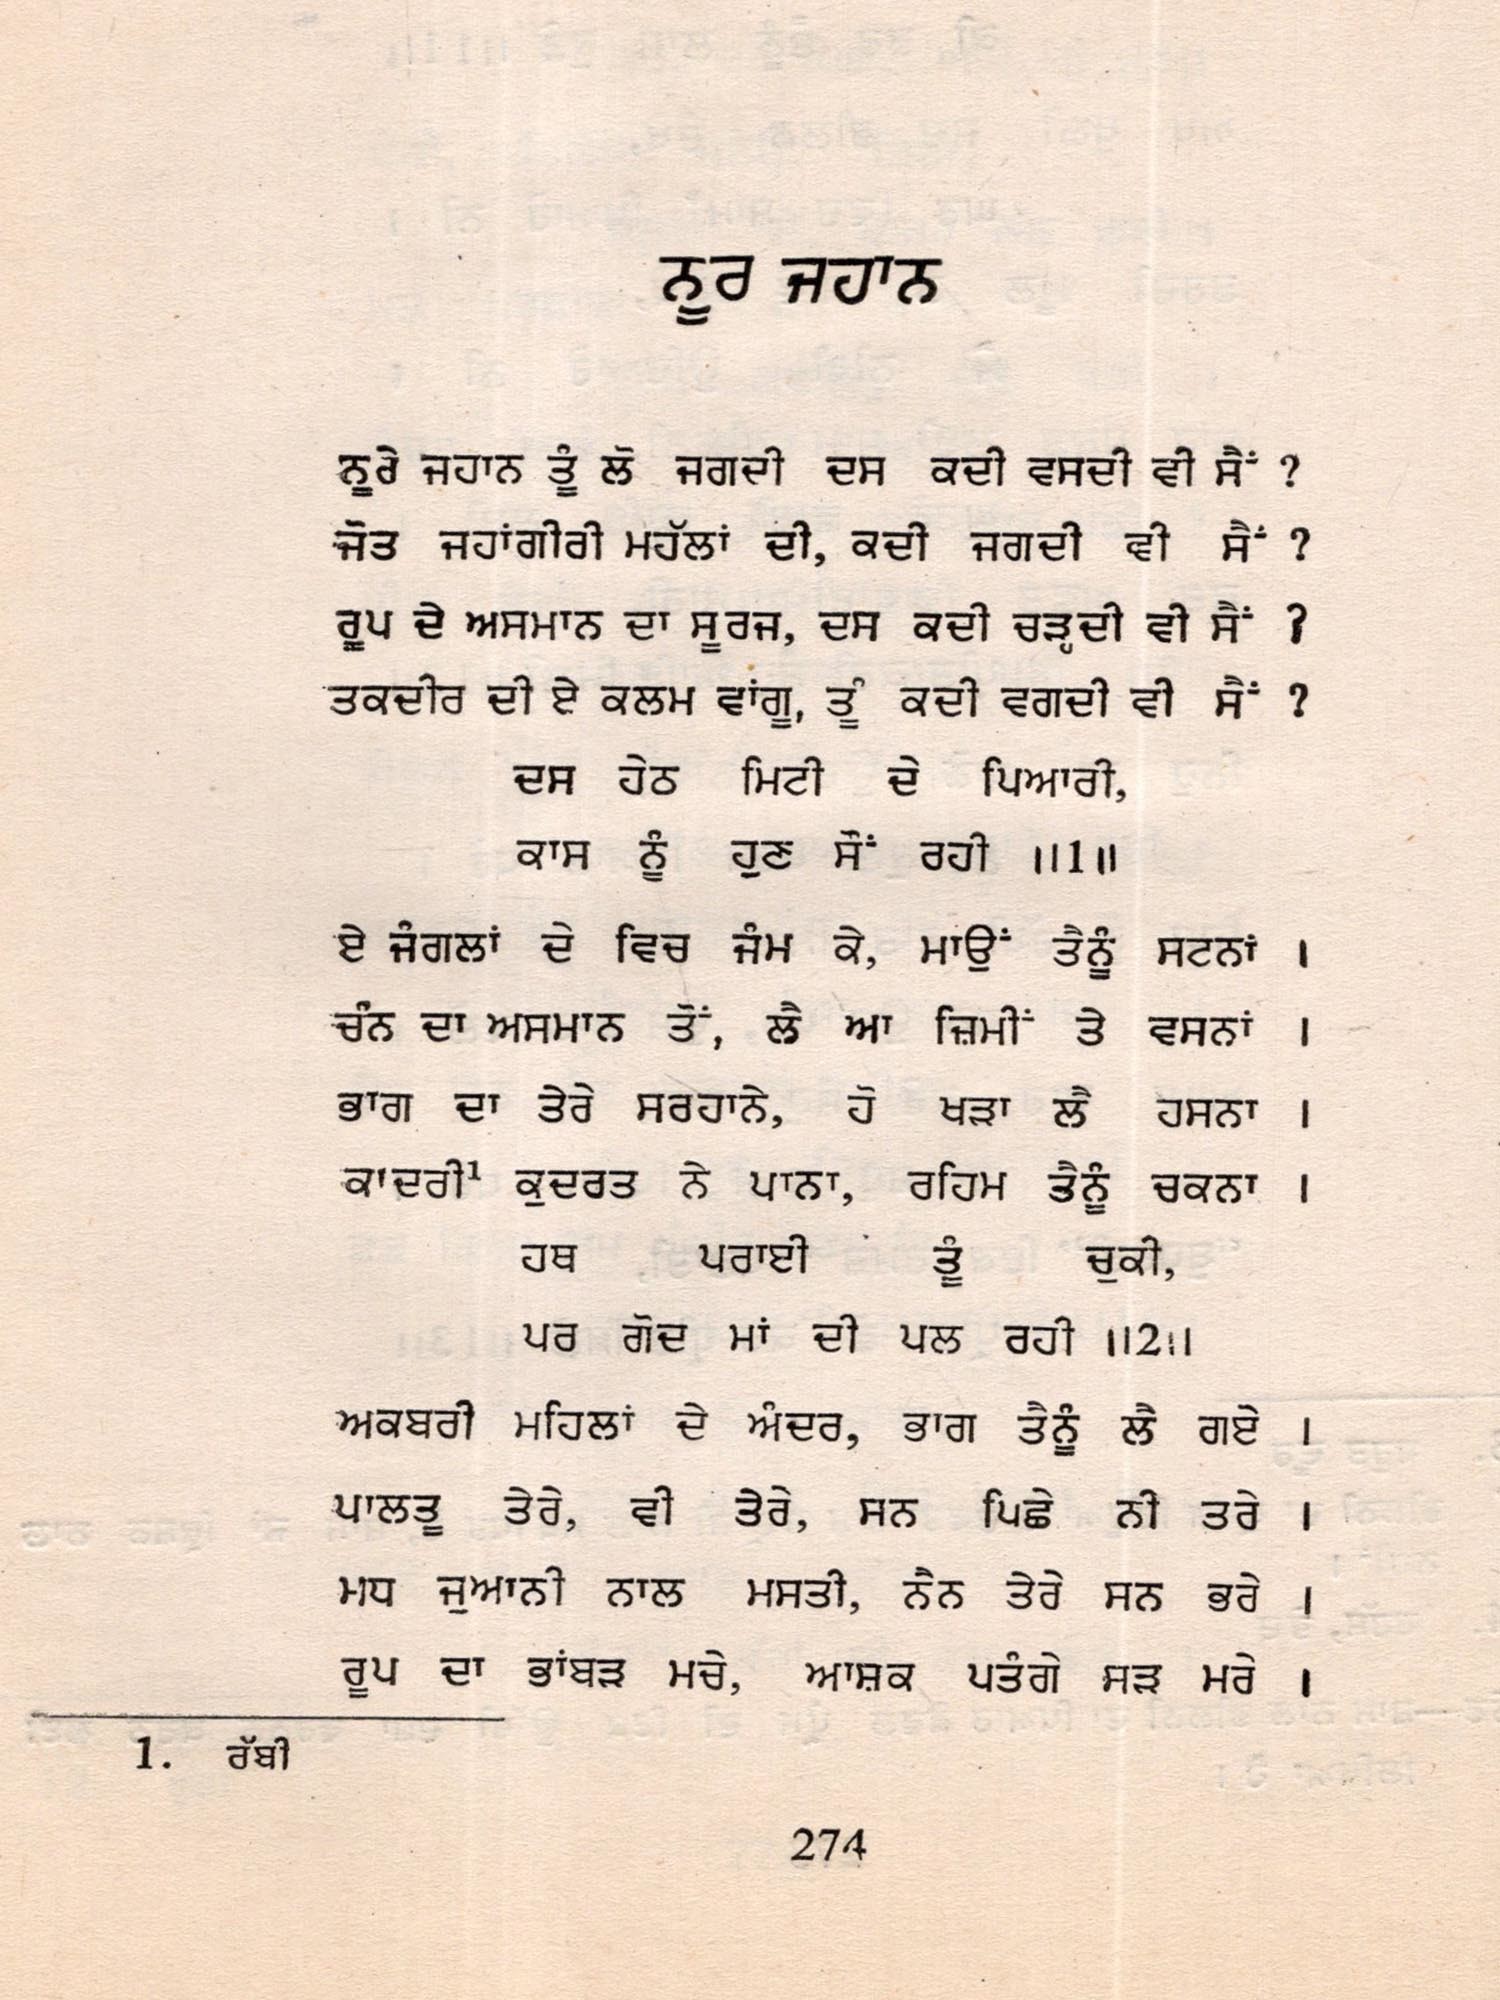 ਨੂਰ ਜਹਾਨ
ਨੂਰੇ ਜਹਾਨ ਤੂੰ ਲੋ ਜਗਦੀ ਦਸ ਕਦੀ ਵਸਦੀ ਵੀ ਸੈਂ ?
ਜੋਤ ਜਹਾਂਗੀਰੀ ਮਹੱਲਾਂ ਦੀ, ਕਦੀ ਜਗਦੀ ਵੀ ਸੈਂ ?
ਰੂਪ ਦੇ ਅਸਮਾਨ ਦਾ ਸੂਰਜ, ਦਸ ਕਦੀ ਚੜ੍ਹਦੀ ਵੀ ਸੈਂ ?
ਤਕਦੀਰ ਦੀ ਏ ਕਲਮ ਵਾਂਗੂ, ਤੂੰ ਕਦੀ ਵਗਦੀ ਵੀ ਸੈਂ ?
ਦਸ ਹੇਠ ਮਿਟੀ ਦੇ ਪਿਆਰੀ,
ਕਾਸ ਨੂੰ ਹੁਣ ਸੌਂ ਰਹੀ ॥1॥
ਏ ਜੰਗਲਾਂ ਦੇ ਵਿਚ ਜੰਮ ਕੇ, ਮਾਉਂ ਤੈਨੂੰ ਸਟਨਾਂ ।
ਚੰਨ ਦਾ ਅਸਮਾਨ ਤੋਂ, ਲੈ ਆ ਜ਼ਿਮੀਂ ਤੇ ਵਸਨਾਂ ।
ਭਾਗ ਦਾ ਤੇਰੇ ਸਰਹਾਨੇ, ਹੋ ਖੜਾ ਲੈ ਹਸਨਾ ।
ਕਾਦਰੀ¹ ਕੁਦਰਤ ਨੇ ਪਾਨਾ, ਰਹਿਮ ਤੈਨੂੰ ਚਕਨਾ ।
ਹਥ ਪਰਾਈ ਤੂੰ ਚੁਕੀ,
ਪਰ ਗੋਦ ਮਾਂ ਦੀ ਪਲ ਰਹੀ ॥2॥
ਅਕਬਰੀ ਮਹਿਲਾਂ ਦੇ ਅੰਦਰ, ਭਾਗ ਤੈਨੂੰ ਲੈ ਗਏ ।
ਪਾਲਤੂ ਤੇਰੇ, ਵੀ ਤੇਰੇ, ਸਨ ਪਿਛੇ ਨੀ ਤਰੇ ।
ਮਧ ਜੁਆਨੀ ਨਾਲ ਮਸਤੀ, ਨੈਨ ਤੇਰੇ ਸਨ ਭਰੇ ।
ਰੂਪ ਦਾ ਭਾਂਬੜ ਮਚੇ, ਆਸ਼ਕ ਪਤੰਗੇ ਸੜ ਮਰੇ ।
1. ਰੱਬੀ
274